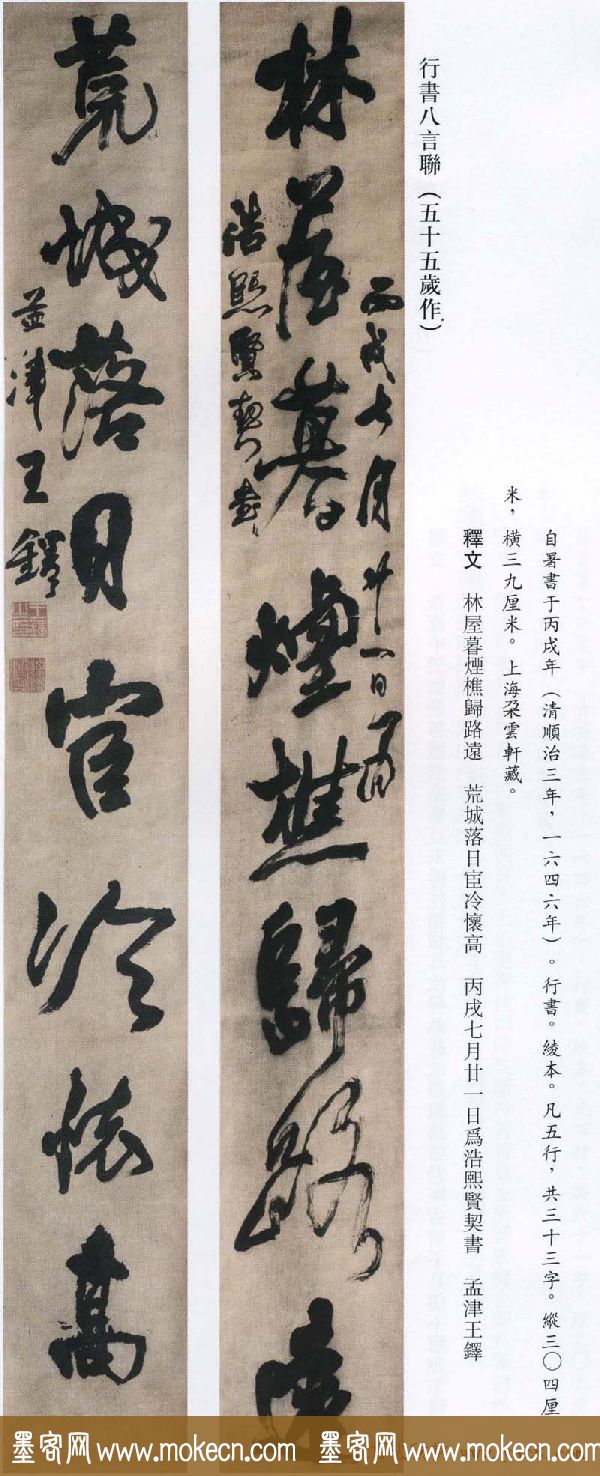 行書八言聯（五十五歲作）
自署書于丙戌年（清順治三年，一六四六年）。行書。綾本。凡五行，共三十三字。縱三〇四厘
米，橫三九厘米。上海朵雲軒藏。
釋文　林屋暮煙樵歸路遠　荒城落日宦冷懷高　丙戌七月廿一日爲浩熙賢契書　孟津王鐸
丙戌七月廿一日爲
林屋暮煙樵歸路遠
浩熙賢契書
荒城落日宦冷懷高
孟津王鐸
墨客网 www.mokecn.com 墨客网 www.mokecn.com